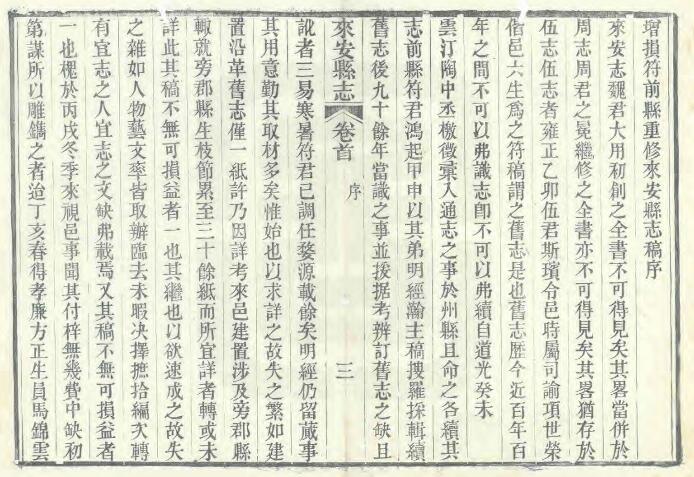 增損符前縣重修來安縣志稿序
來安志魏君大用初創之全書不可得見矣其畧當併於
周志周君之冕繼修之全書亦不可得見矣其畧猶存於
伍志伍志者雍正乙卯伍君斯璸令邑時屬司諭項世榮
偕邑六生爲之符稿謂之舊志是也舊志歴今近百年百
年之間不可以弗識志卽不可以弗續自道光癸未
雲汀陶中丞檄徵彙入通志之事於州縣且命之各續其
志前縣符君鴻起甲申以其弟明經瀚主稿搜羅採輯續
舊志後九十餘年當識之事並援据考辨訂舊志之缺且
來安縣志
卷首
序
三
訛者三易寒暑符君已調任婺源載餘矣明經仍留蕆事
其用意勤其取材多矣惟始也以求詳之故失之繁如建
置沿革舊志僅一紙許乃因詳考來邑建置涉及旁郡縣
輙就旁郡縣生枝節累至三十餘紙而所宜詳者轉或未
詳此其稿不無可損益者一也其繼也以欲速成之故失
之雜如人物藝文率皆取辦臨去未暇决擇摭拾編次轉
有宜志之人宜志之文缺弗載焉又其稿不無可損益者
一也槐於丙戌冬季來視邑事聞其付梓無幾費中缺初
第謀所以雕鐫之者迨丁亥春得孝廉方正生員馬錦雲